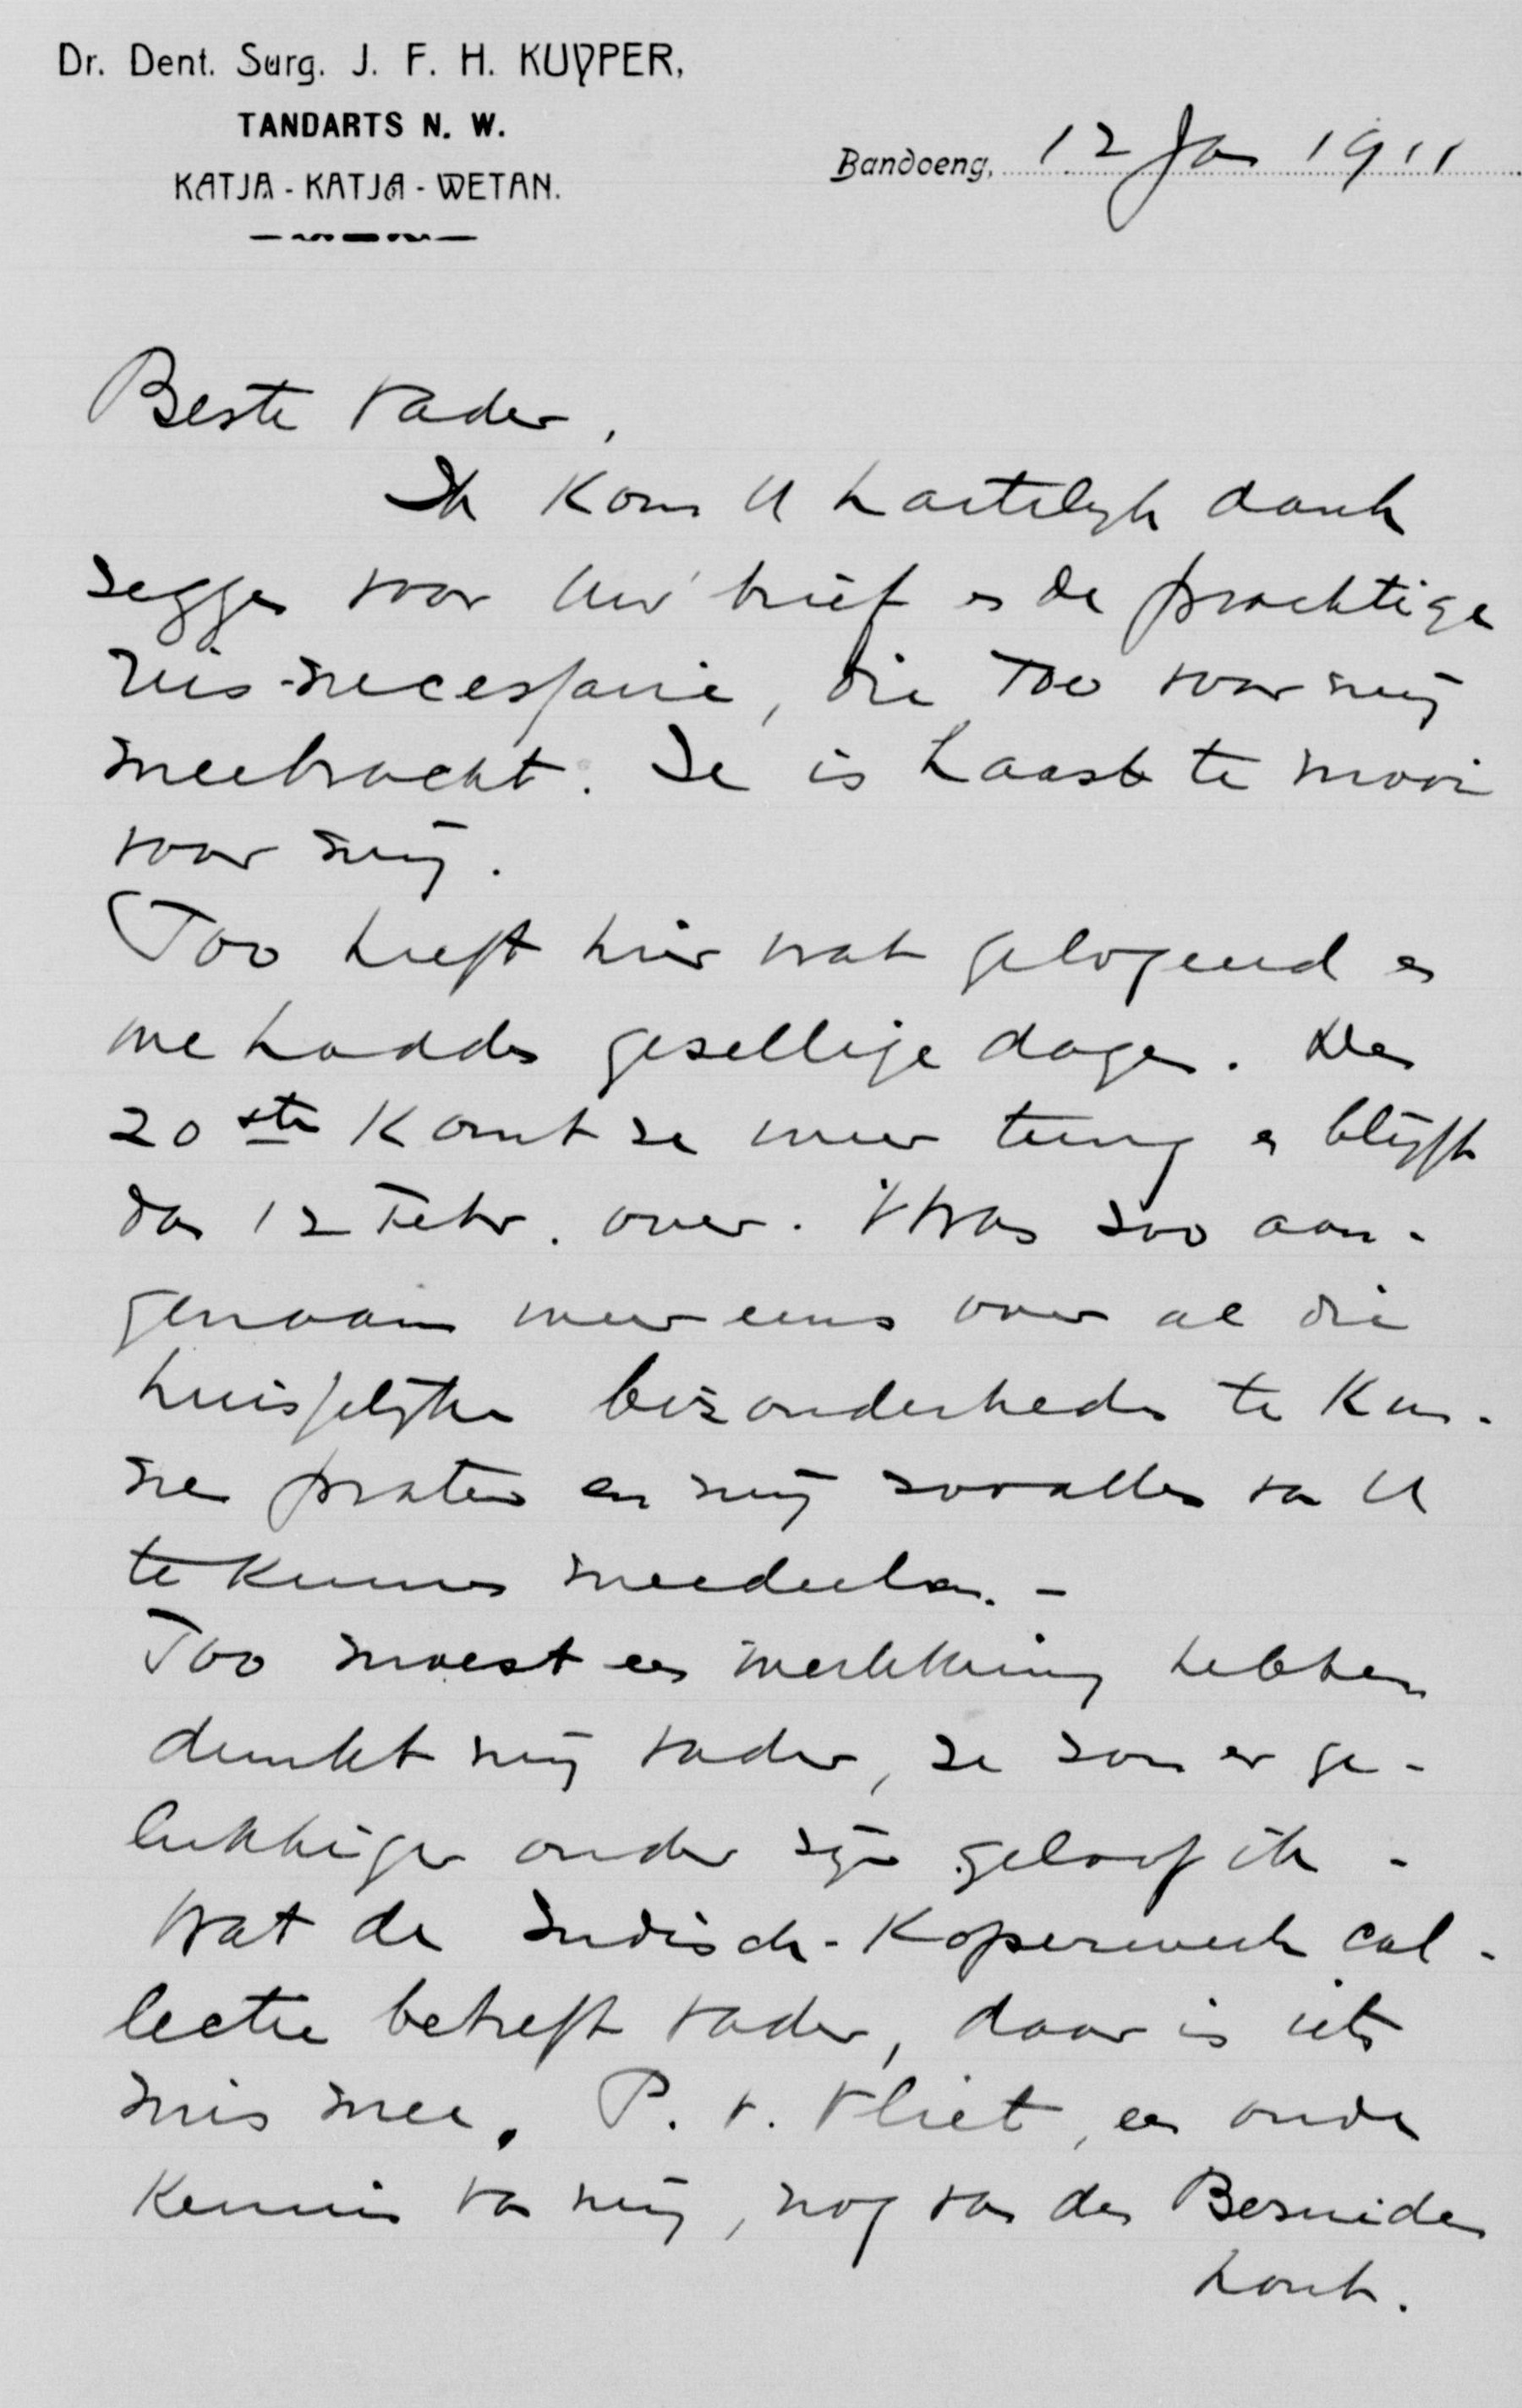 Dr. Dent. Surg. J. F. H. KUYPER,
TANDARTS N. W.
KATJA - KATJA - WETAN.
Bandoeng, 12 Jan 1911
Beste Vader,
Ik kom U hartelijk dank
zeggen voor Uw brief en de prachtige
reis-necessaire, die Too voor mij
meebracht. Ze is haast te mooi
voor mij.
Too heeft hier wat gelogeerd en
we hadden gezellige dagen. Den
20ste komt ze weer terug en blijft
dan 12 Febr. over. 't Was zoo aan-
genaam weer eens over al die
huisselijke bizonderheden te kun-
nen praten en mij zoo alles van U
te kunnen meedeelen. -
Too moest een werkkring hebben
dunkt mij Vader, ze zou er ge-
lukkiger onder zijn geloof ik -
Wat de Indisch-Koperwerk col-
lectie betreft Vader, daar is iets
mis mee. P. v. Vliet, een oude
kennis van mij, nog van den Bezuiden
hout.